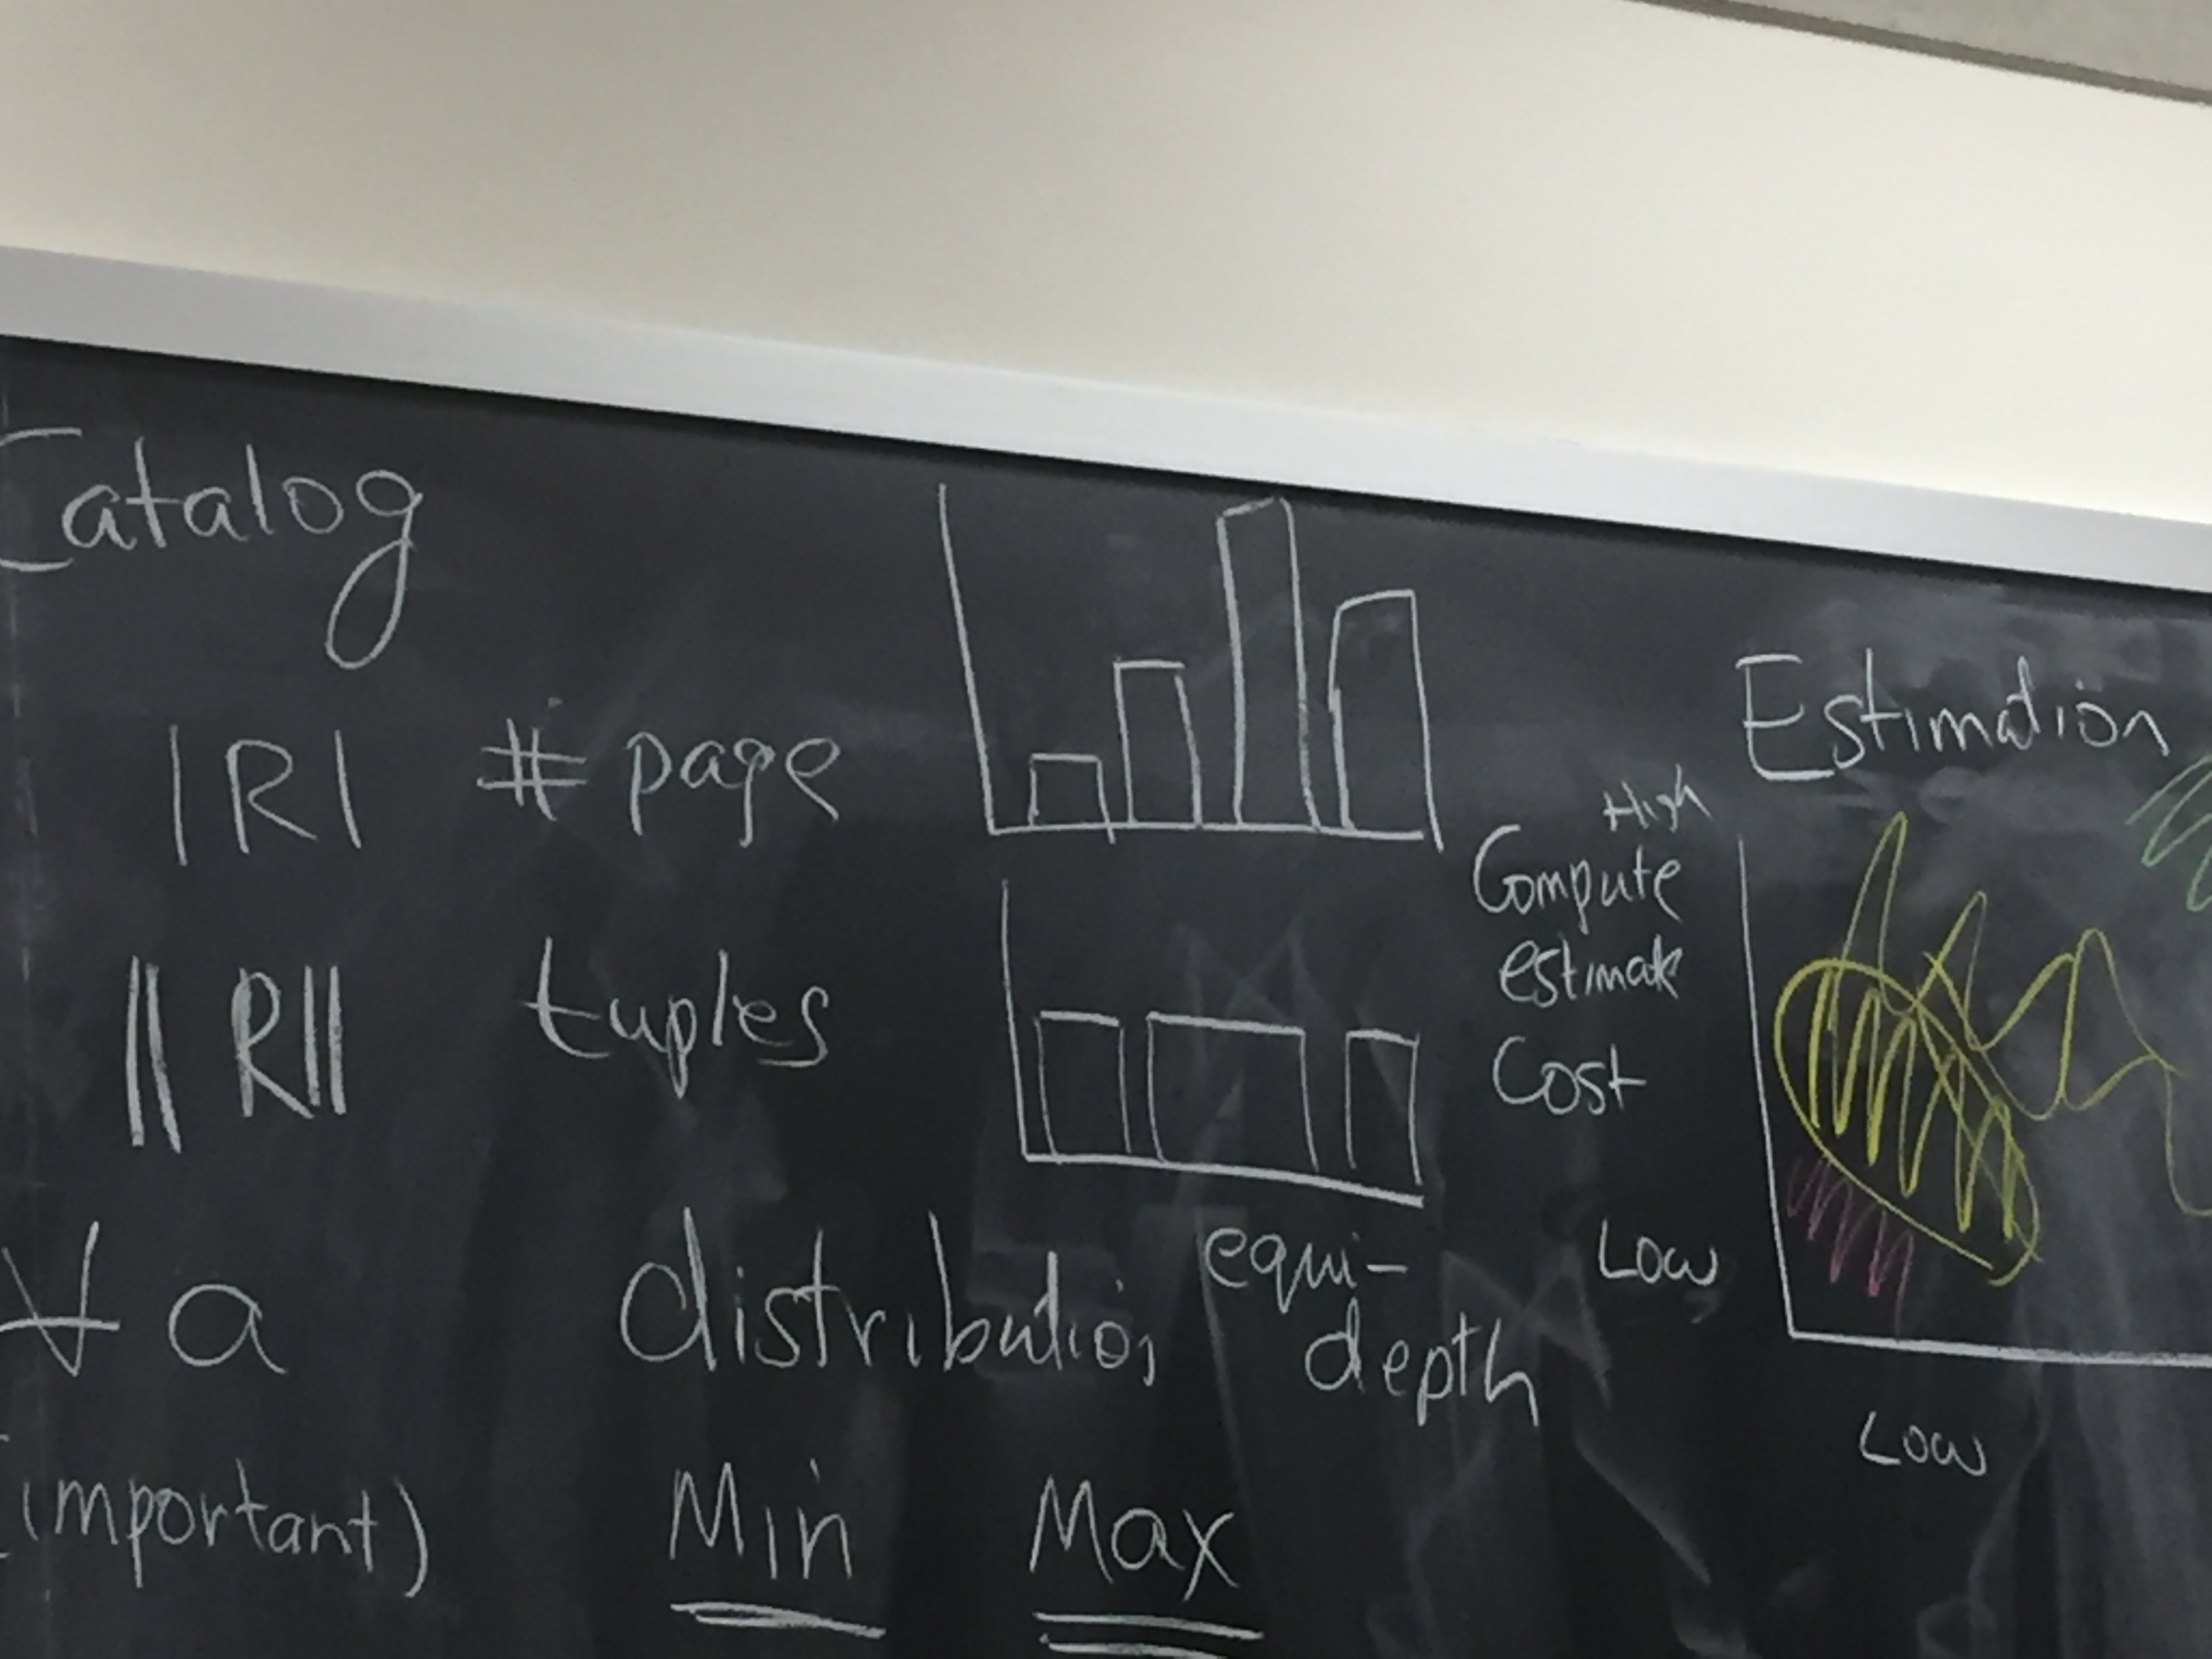 Catalog
|R| # page
||R|| tuples
∀ a distribution
equi-
depth
(important) Min Max
Estimation
High
Compute
estimate
Cost
Low
Low